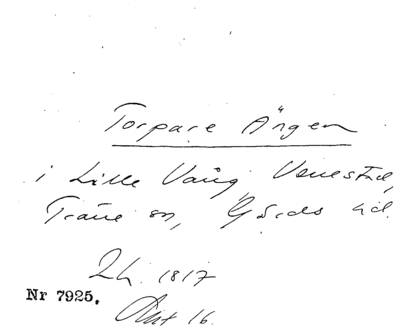 Torpare Ängen
i Lille Vång, Venestad,
Träne sn, Gärds hd.
2h. 1817
Nr 7925.
16.